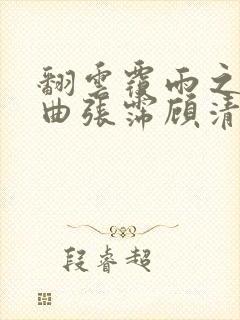 翻雲覆雨之
曲張霈顧清
段睿超